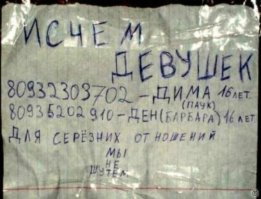 ИСЧЕМ
ДЕВУШЕК
80932303702-ДИМА 16 лет.
(ПАУК)
80935202910-ДЕН(БАРБАРА) 16 лет.
ДЛЯ СЕРЁЗНИХ ОТНОШЕНИЙ
МЫ
НЕ
ШУТЕМ